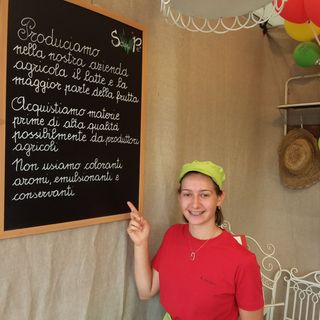 Produciamo
nella nostra azienda
agricola il latte e la
maggior parte della frutta
Acquistiamo materie
prime di alta qualità
possibilmente da produttori
agricoli
Non usiamo coloranti
aromi, emulsionanti e
conservanti